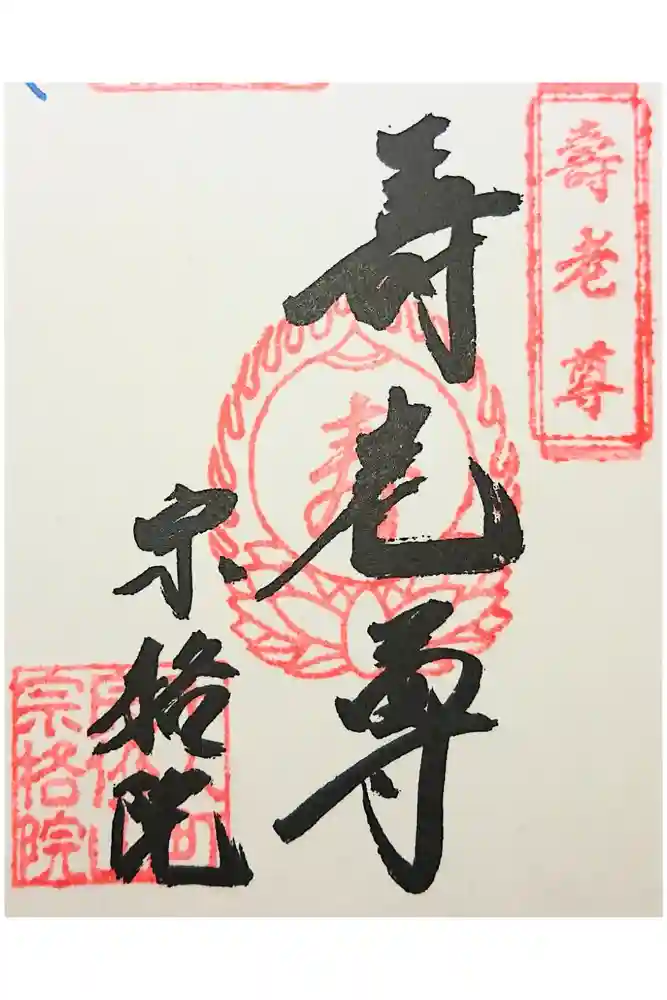 壽老尊
寿老尊
寿
宗格院
宗格院